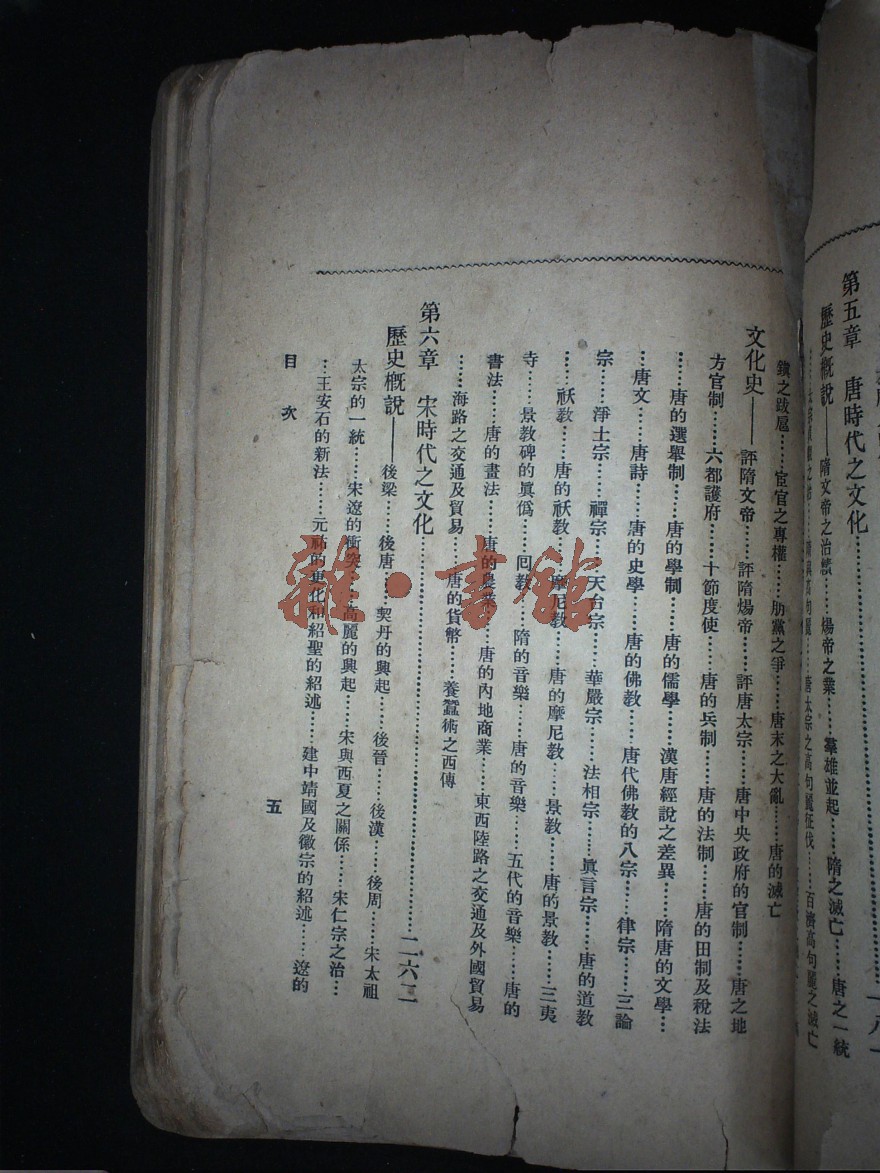 第五章　唐時代之文化
歷史概說——隋文帝之治績……煬帝之業……羣雄並起……隋之滅亡……唐之一統
唐太宗之高句麗征伐……百濟高句麗之滅亡
鎭之跋扈……宦官之專權……朋黨之爭……唐末之大亂……唐的滅亡
文化史——評隋文帝……評隋煬帝……評唐太宗……唐中央政府的官制……唐之地
方官制……六都護府……十節度使……唐的兵制……唐的法制……唐的田制及稅法
……唐的選舉制……唐的學制……唐的儒學……漢唐經說之差異……隋唐的文學…
…唐文……唐詩……唐的史學……唐的佛教……唐代佛教的八宗……律宗……三論
宗……淨土宗……禪宗……天台宗……華嚴宗……法相宗……眞言宗……唐的道教
……祆教……唐的祆教……摩尼教……唐的摩尼教……景教……唐的景教……三夷
寺……景教碑的眞僞……回教……隋的音樂……唐的音樂……五代的音樂……唐的
書法……唐的畫法……唐的農業……唐的內地商業……東西陸路之交通及外國貿易
……海路之交通及貿易……唐的貨幣……養蠶術之西傳
第六章　宋時代之文化……二六二
歷史概說——後梁……後唐……契丹的興起……後晉……後漢……後周……宋太祖
太宗的一統……宋遼的衝突……高麗的興起……宋與西夏之關係……宋仁宗之治…
…王安石的新法……元祐的更化和紹聖的紹述……建中靖國及徽宗的紹述……遼的
目次
五
雜·書館